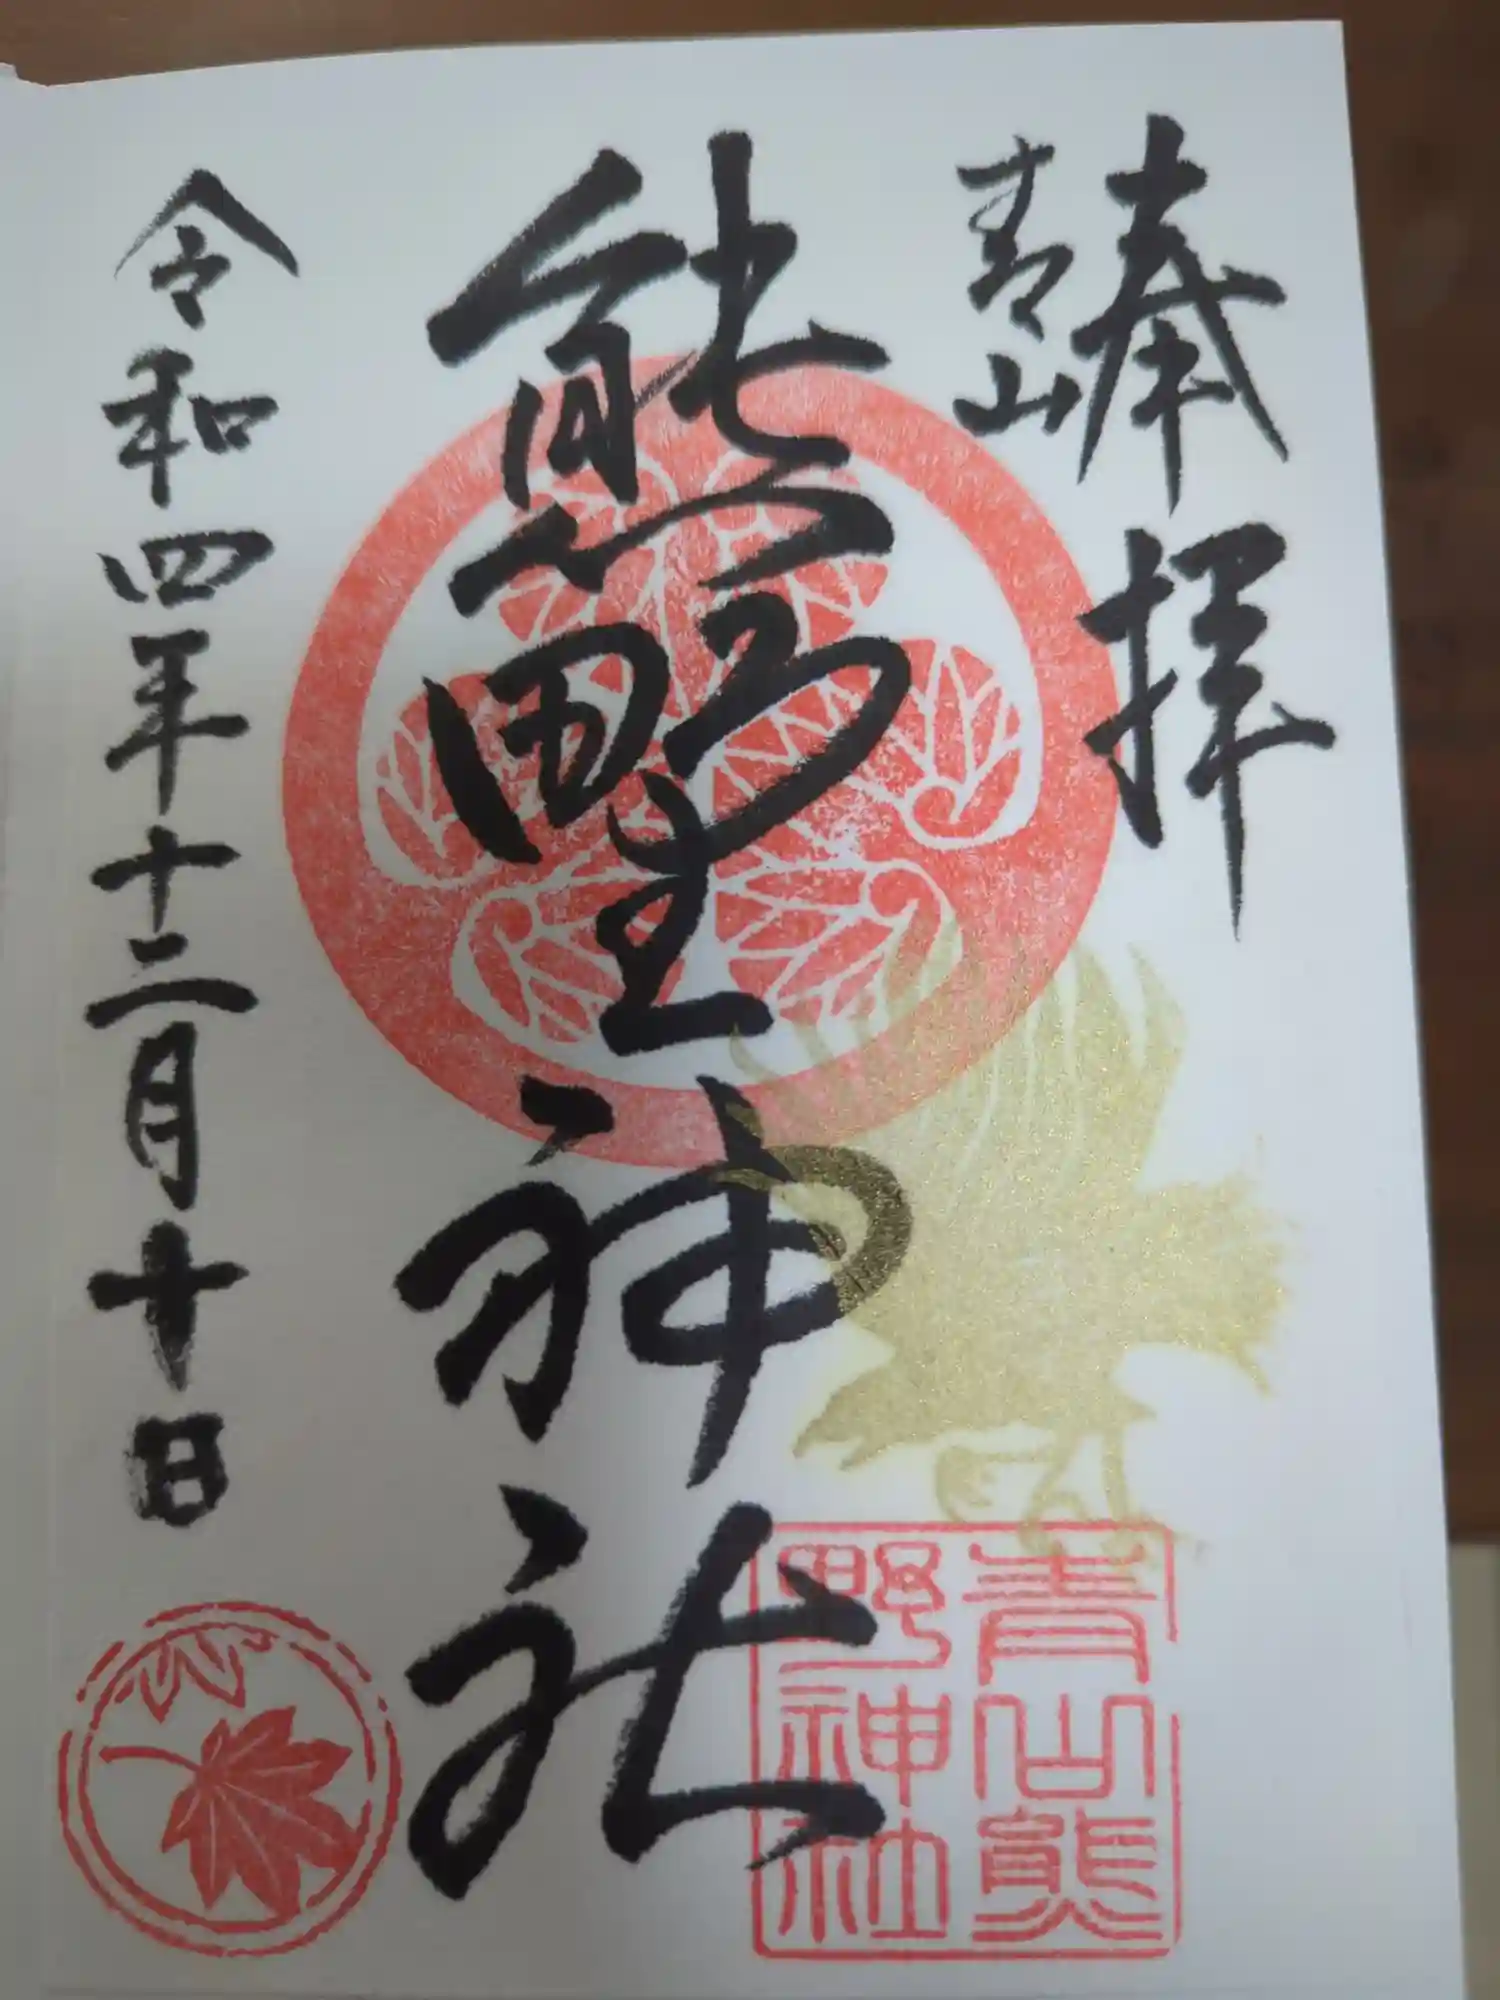 奉拝
青山
熊野神社
令和四年十二月十日
青山熊
野神社